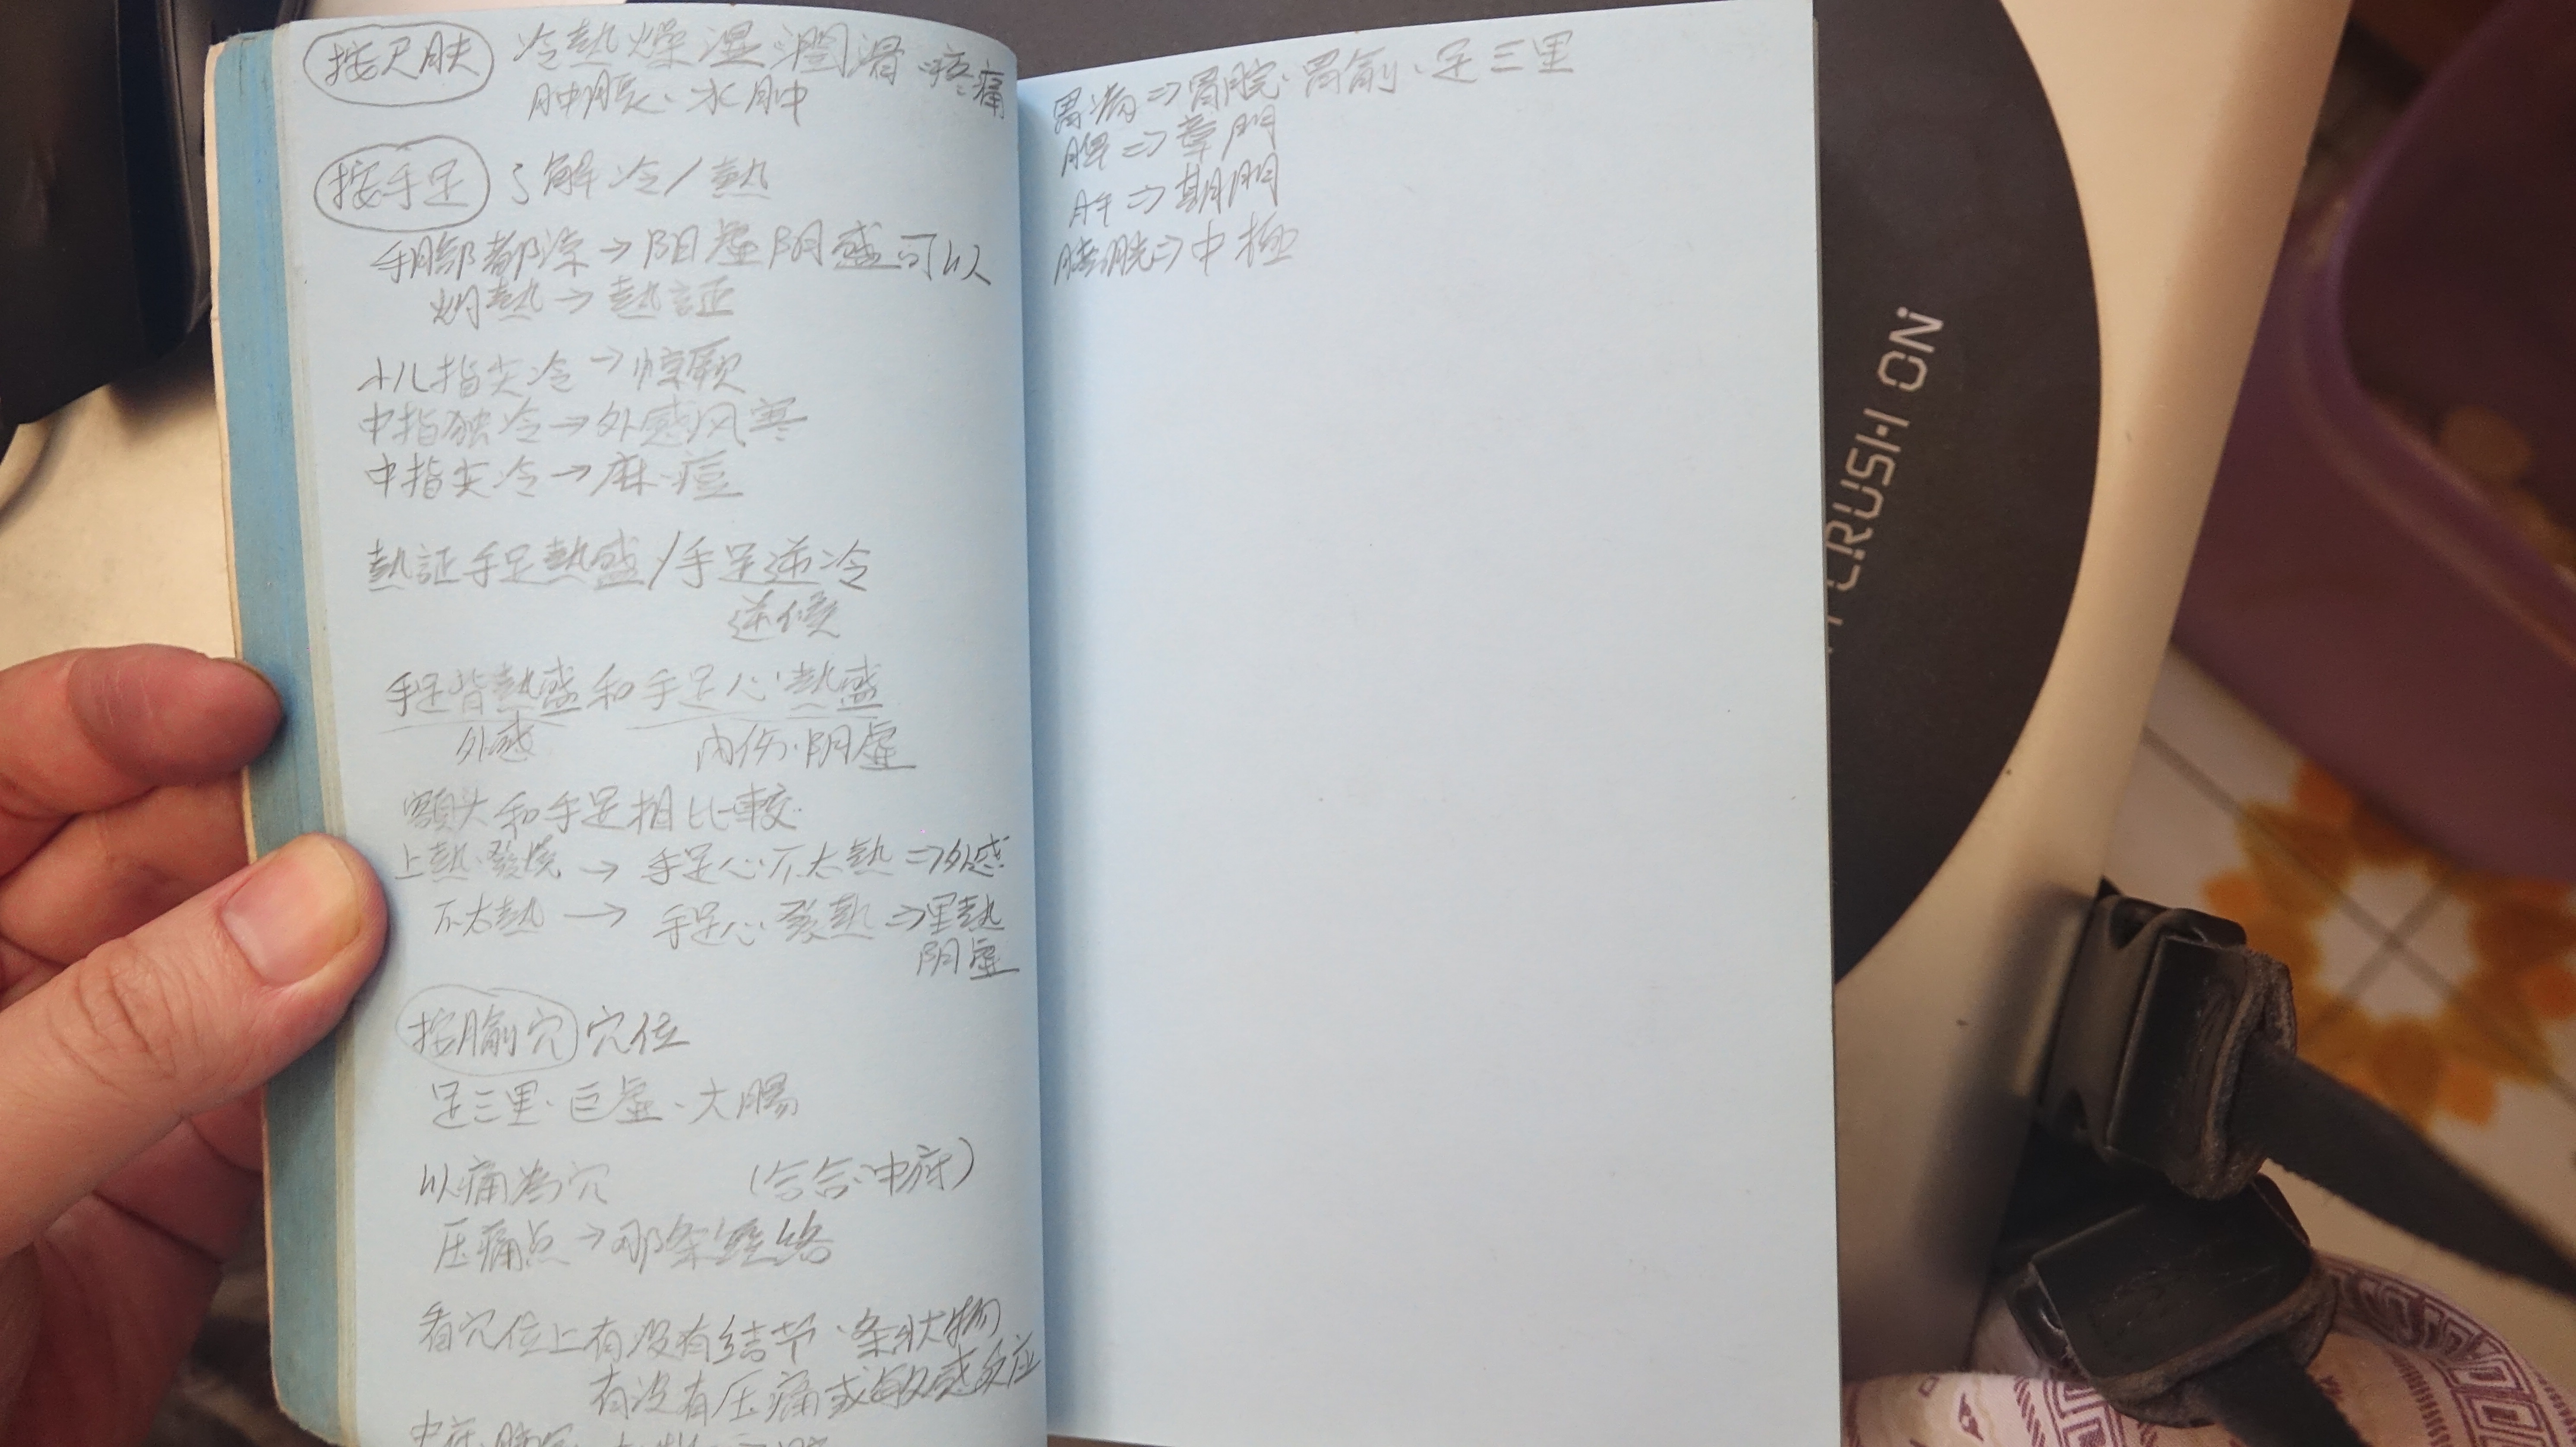 按尺肤 冷熱燥湿潤滑·疼痛
肿脹、水肿
按手足 了解冷/熱
手脚部都凉→阳虚阴盛可以
灼熱→熱証
小儿指尖冷→惊厥
中指独冷→外感风寒
中指尖冷→麻·痘
熱証手足熱盛/手足逆冷
逆候
手足背熱盛和手足心熱盛
外感 内伤·阴虚
額头和手足相比較
上熱·發燒→手足心不太熱⇒外感
不太熱→手足心發熱⇒里熱
阴虚
按腧穴 穴位
足三里、巨虚、大腸
以痛為穴 (合谷·中府)
压痛点→那条經络
看穴位上有没有结节、条状物
有没有压痛或敏感反应
中府
胃病⇒胃脘·胃俞、足三里
脾⇒章門
肝⇒期門
膀胱⇒中极
CRUSH ON